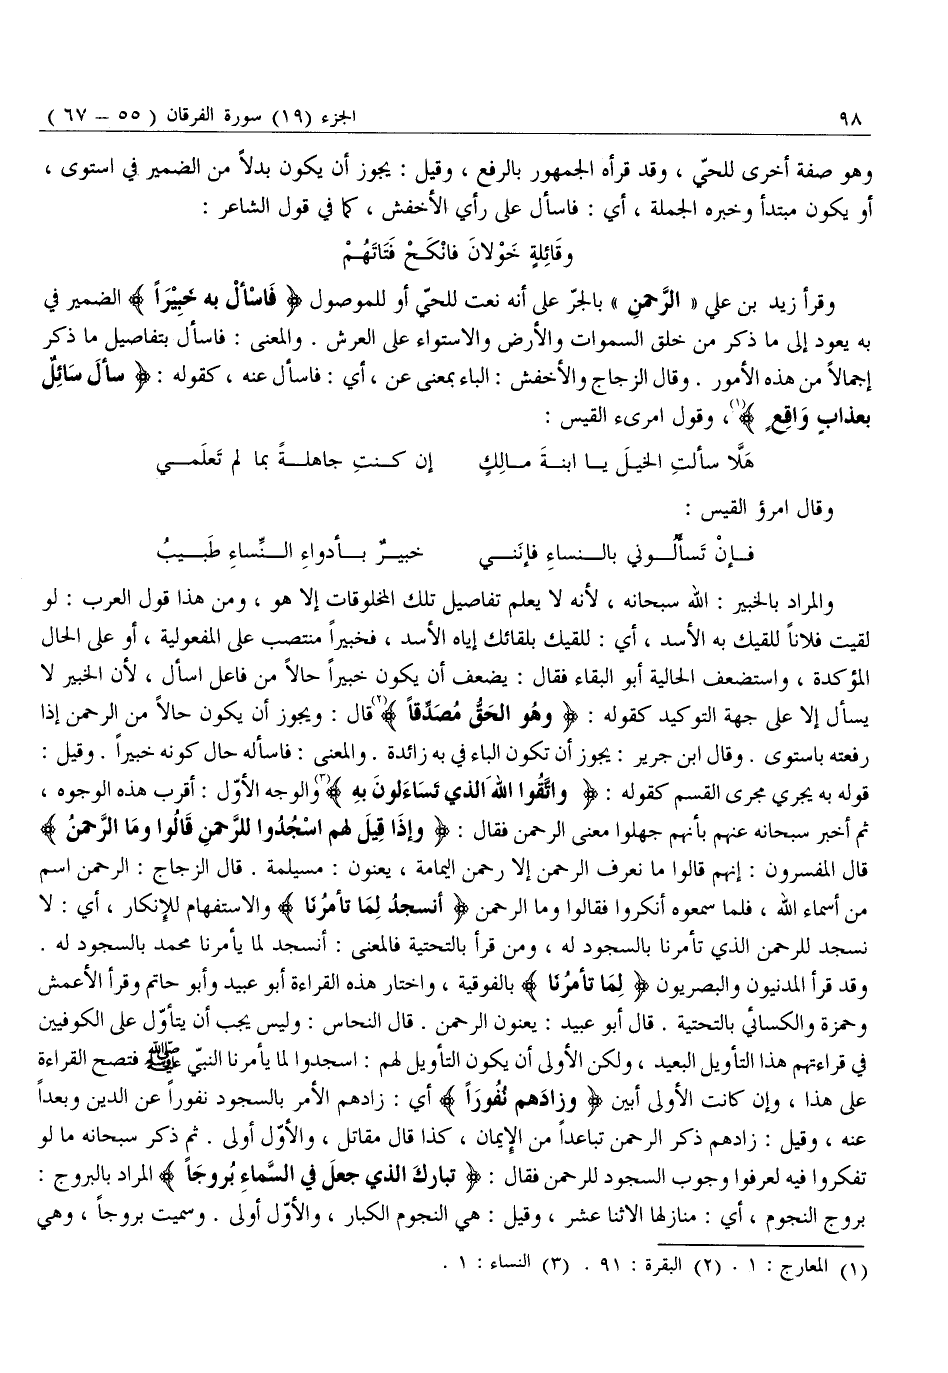 ٩٨ الجزء (١٩) سورة الفرقان ( ٥٥ – ٦٧ )
وهو صفة أخرى للحيّ ، وقد قرأه الجمهور بالرفع ، وقيل : يجوز أن يكون بدلاً من الضمير في استوى ،
أو يكون مبتدأ وخبره الجملة ، أي : فاسأل على رأي الأخفش ، كما في قول الشاعر :
وقَائِلةٍ خَوْلانَ فانْكَحْ فَتَاتَهُمْ
وقرأ زيد بن علي « الرَّحمنِ » بالجرّ على أنه نعت للحيّ أو للموصول ﴿ فَاسْأَلْ به خَبِيْرَاً ﴾ الضمير في
به يعود إلى ما ذكر من خلق السموات والأرض والاستواء على العرش . والمعنى : فاسأل بتفاصيل ما ذكر
إجمالاً من هذه الأمور . وقال الزجاج والأخفش : الباء بمعنى عن ، أي : فاسأل عنه ، كقوله : ﴿ سألَ سَائِلٌ
بعذابٍ وَاقِعٍ ﴾(١)، وقول امرىء القيس :
هَلَّا سألتِ الخيلَ يـا ابنةَ مـالِكٍ إن كنتِ جاهلـةً بما لم تَعلَمـي
وقال امرؤ القيس :
فـإنْ تَسألُـوني بالـنساءِ فإنَنـي خبيـرٌ بـأدواءِ النِّساءِ طَبـيبُ
والمراد بالخبير : الله سبحانه ، لأنه لا يعلم تفاصيل تلك المخلوقات إلا هو ، ومن هذا قول العرب : لو
لقيت فلاناً للقيك به الأسد ، أي : للقيك بلقائك إياه الأسد ، فخبيراً منتصب على المفعولية ، أو على الحال
المؤكدة ، واستضعف الحالية أبو البقاء فقال : يضعف أن يكون خبيراً حالاً من فاعل اسأل ، لأن الخبير لا
يسأل إلا على جهة التوكيد كقوله : ﴿ وهُو الحَقُّ مُصَدِّقاً ﴾(٢) قال : ويجوز أن يكون حالاً من الرحمن إذا
رفعته باستوى . وقال ابن جرير : يجوز أن تكون الباء في به زائدة . والمعنى : فاسأله حال كونه خبيراً . وقيل :
قوله به يجري مجرى القسم كقوله : ﴿ واتَّقُوا اللهَ الذي تَسَاءَلونَ بهِ ﴾(٣) والوجه الأوّل : أقرب هذه الوجوه ،
ثم أخبر سبحانه عنهم بأنهم جهلوا معنى الرحمن فقال : ﴿ وإذَا قِيلَ لهم اسْجُدُوا للرَّحمنِ قَالُوا ومَا الرَّحمنُ ﴾
قال المفسرون : إنهم قالوا ما نعرف الرحمن إلا رحمن اليمامة ، يعنون : مسيلمة . قال الزجاج : الرحمن اسم
من أسماء الله ، فلما سمعوه أنكروا فقالوا وما الرحمن ﴿ أنسجدُ لِمَا تأمرُنَا ﴾ والاستفهام للإنكار ، أي : لا
نسجد للرحمن الذي تأمرنا بالسجود له ، ومن قرأ بالتحتية فالمعنى : أنسجد لما يأمرنا محمد بالسجود له .
وقد قرأ المدنيون والبصريون ﴿ لِمَا تأمرُنَا ﴾ بالفوقية ، واختار هذه القراءة أبو عبيد وأبو حاتم وقرأ الأعمش
وحمزة والكسائي بالتحتية . قال أبو عبيد : يعنون الرحمن . قال النحاس : وليس يجب أن يتأوّل على الكوفيين
في قراءتهم هذا التأويل البعيد ، ولكن الأولى أن يكون التأويل لهم : اسجدوا لما يأمرنا النبيّ ﷺ فتصح القراءة
على هذا ، وإن كانت الأولى أبين ﴿ وزادَهم نُفُورَاً ﴾ أي : زادهم الأمر بالسجود نفوراً عن الدين وبعداً
عنه ، وقيل : زادهم ذكر الرحمن تباعداً من الإيمان ، كذا قال مقاتل ، والأوّل أولى . ثم ذكر سبحانه ما لو
تفكروا فيه لعرفوا وجوب السجود للرحمن فقال : ﴿ تباركَ الذي جعلَ في السَّماءِ بُروجَاً ﴾ المراد بالبروج :
بروج النجوم ، أي : منازلها الاثنا عشر ، وقيل : هي النجوم الكبار ، والأوّل أولى . وسميت بروجاً ، وهي
(١) المعارج : ١ . (٢) البقرة : ٩١ . (٣) النساء : ١ .